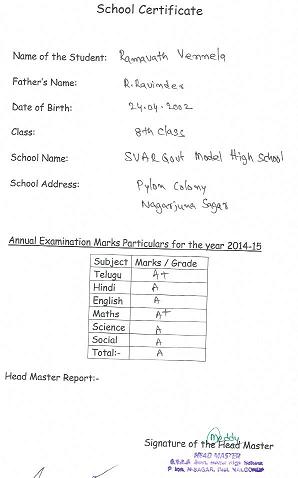 School Certificate
Name of the Student: Ramavath Vennela
Father's Name: R.Ravinder
Date of Birth: 24.04.2002
Class: 8th class
School Name: SVAR Govt Model High School
School Address: Pylon Colony
Nagarjuna Sagar
Annual Examination Marks Particulars for the year 2014-15
Subject Marks / Grade
Telugu A+
Hindi A
English A
Maths A+
Science A
Social A
Total:- A
Head Master Report:-
Signature of the Head Master
HEAD MASTER